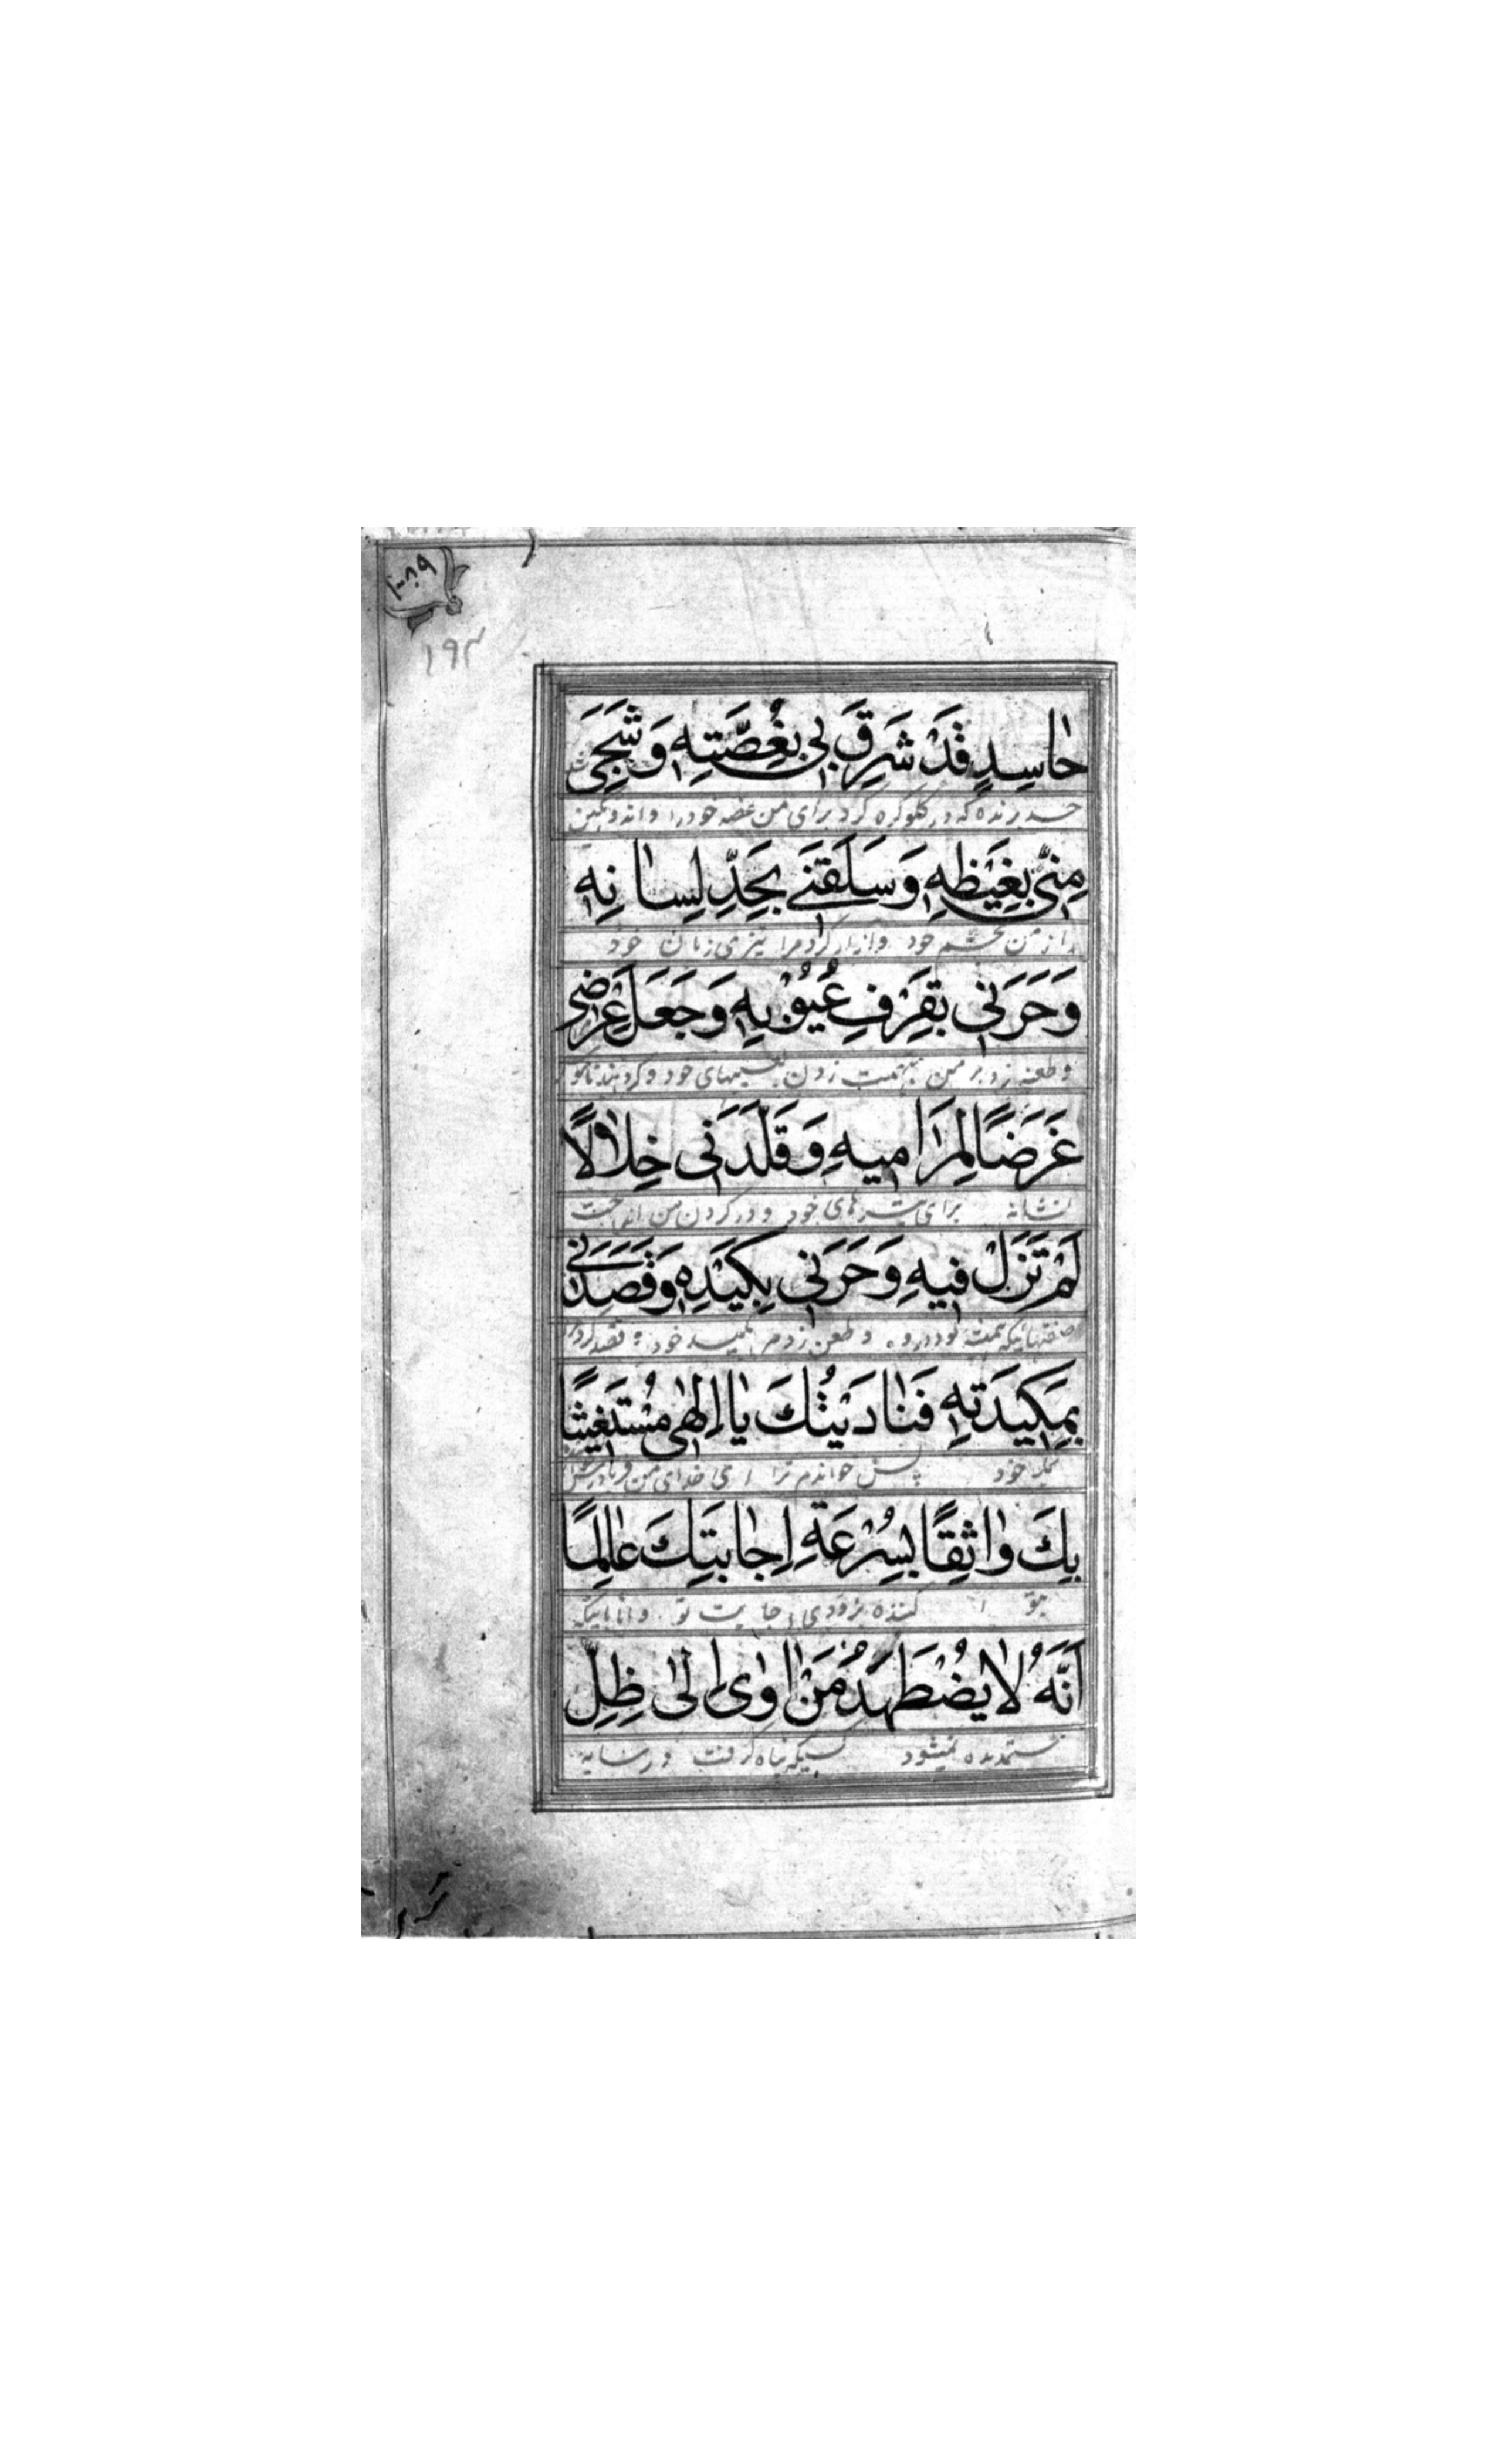 ۱۰۸۹
۱۹۳
حاسِدٍ قَدْ شَرِقَ بی بِغُصَّتِهِ وَشَجِیَ
حسد برنده که در گلو گره کرد برای من غصه خود را و اندوهگین
مِنّی بِغَیْظِهِ وَسَلَقَنی بِحَدِّ لِسانِهِ
از من بخشم خود و آزار کرد مرا بتیزی زبان خود
وَحَرَنی بِقَرْفِ عُیُوْبِهِ وَجَعَلَ عِرْضی
و طعنه زد بر من بتهمت زدن بعیبهای خود و گردانید ناموس
غَرَضًا لِمَرامیهِ وَقَلَّدَنی خِلالًا
نشانه برای تیرهای خود و در گردن من انداخت
لَمْ تَزَلْ فیهِ وَحَرَنی بِکَیْدِهِ وَقَصَدَنی
صفتهائیکه همیشه بود در او و طعن زد مرا بکید خود و قصد کرد مرا
بِمَکیدَتِهِ فَنادَیْتُكَ یا اِلٰهی مُسْتَغیثًا
بمکر خود پس خواندم ترا ای خدای من
بِكَ واثِقًا بِسُرْعَةِ اِجابَتِكَ عالِمًا
بتو کننده بزودی اجابت تو دانا باینکه
اَنَّهُ لا یُضْطَهَدُ مَنْ اَوٰی اِلٰی ظِلِّ
ستمدیده نمیشود کسیکه پناه گرفت در سایه